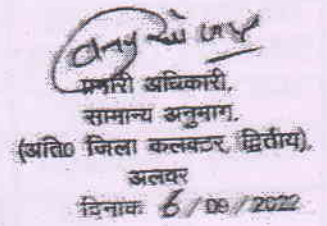 प्रभारी अधिकारी,
सामान्य अनुभाग,
(अति० जिला कलक्टर, द्वितीय),
अलवर
दिनांक 6/09/2022